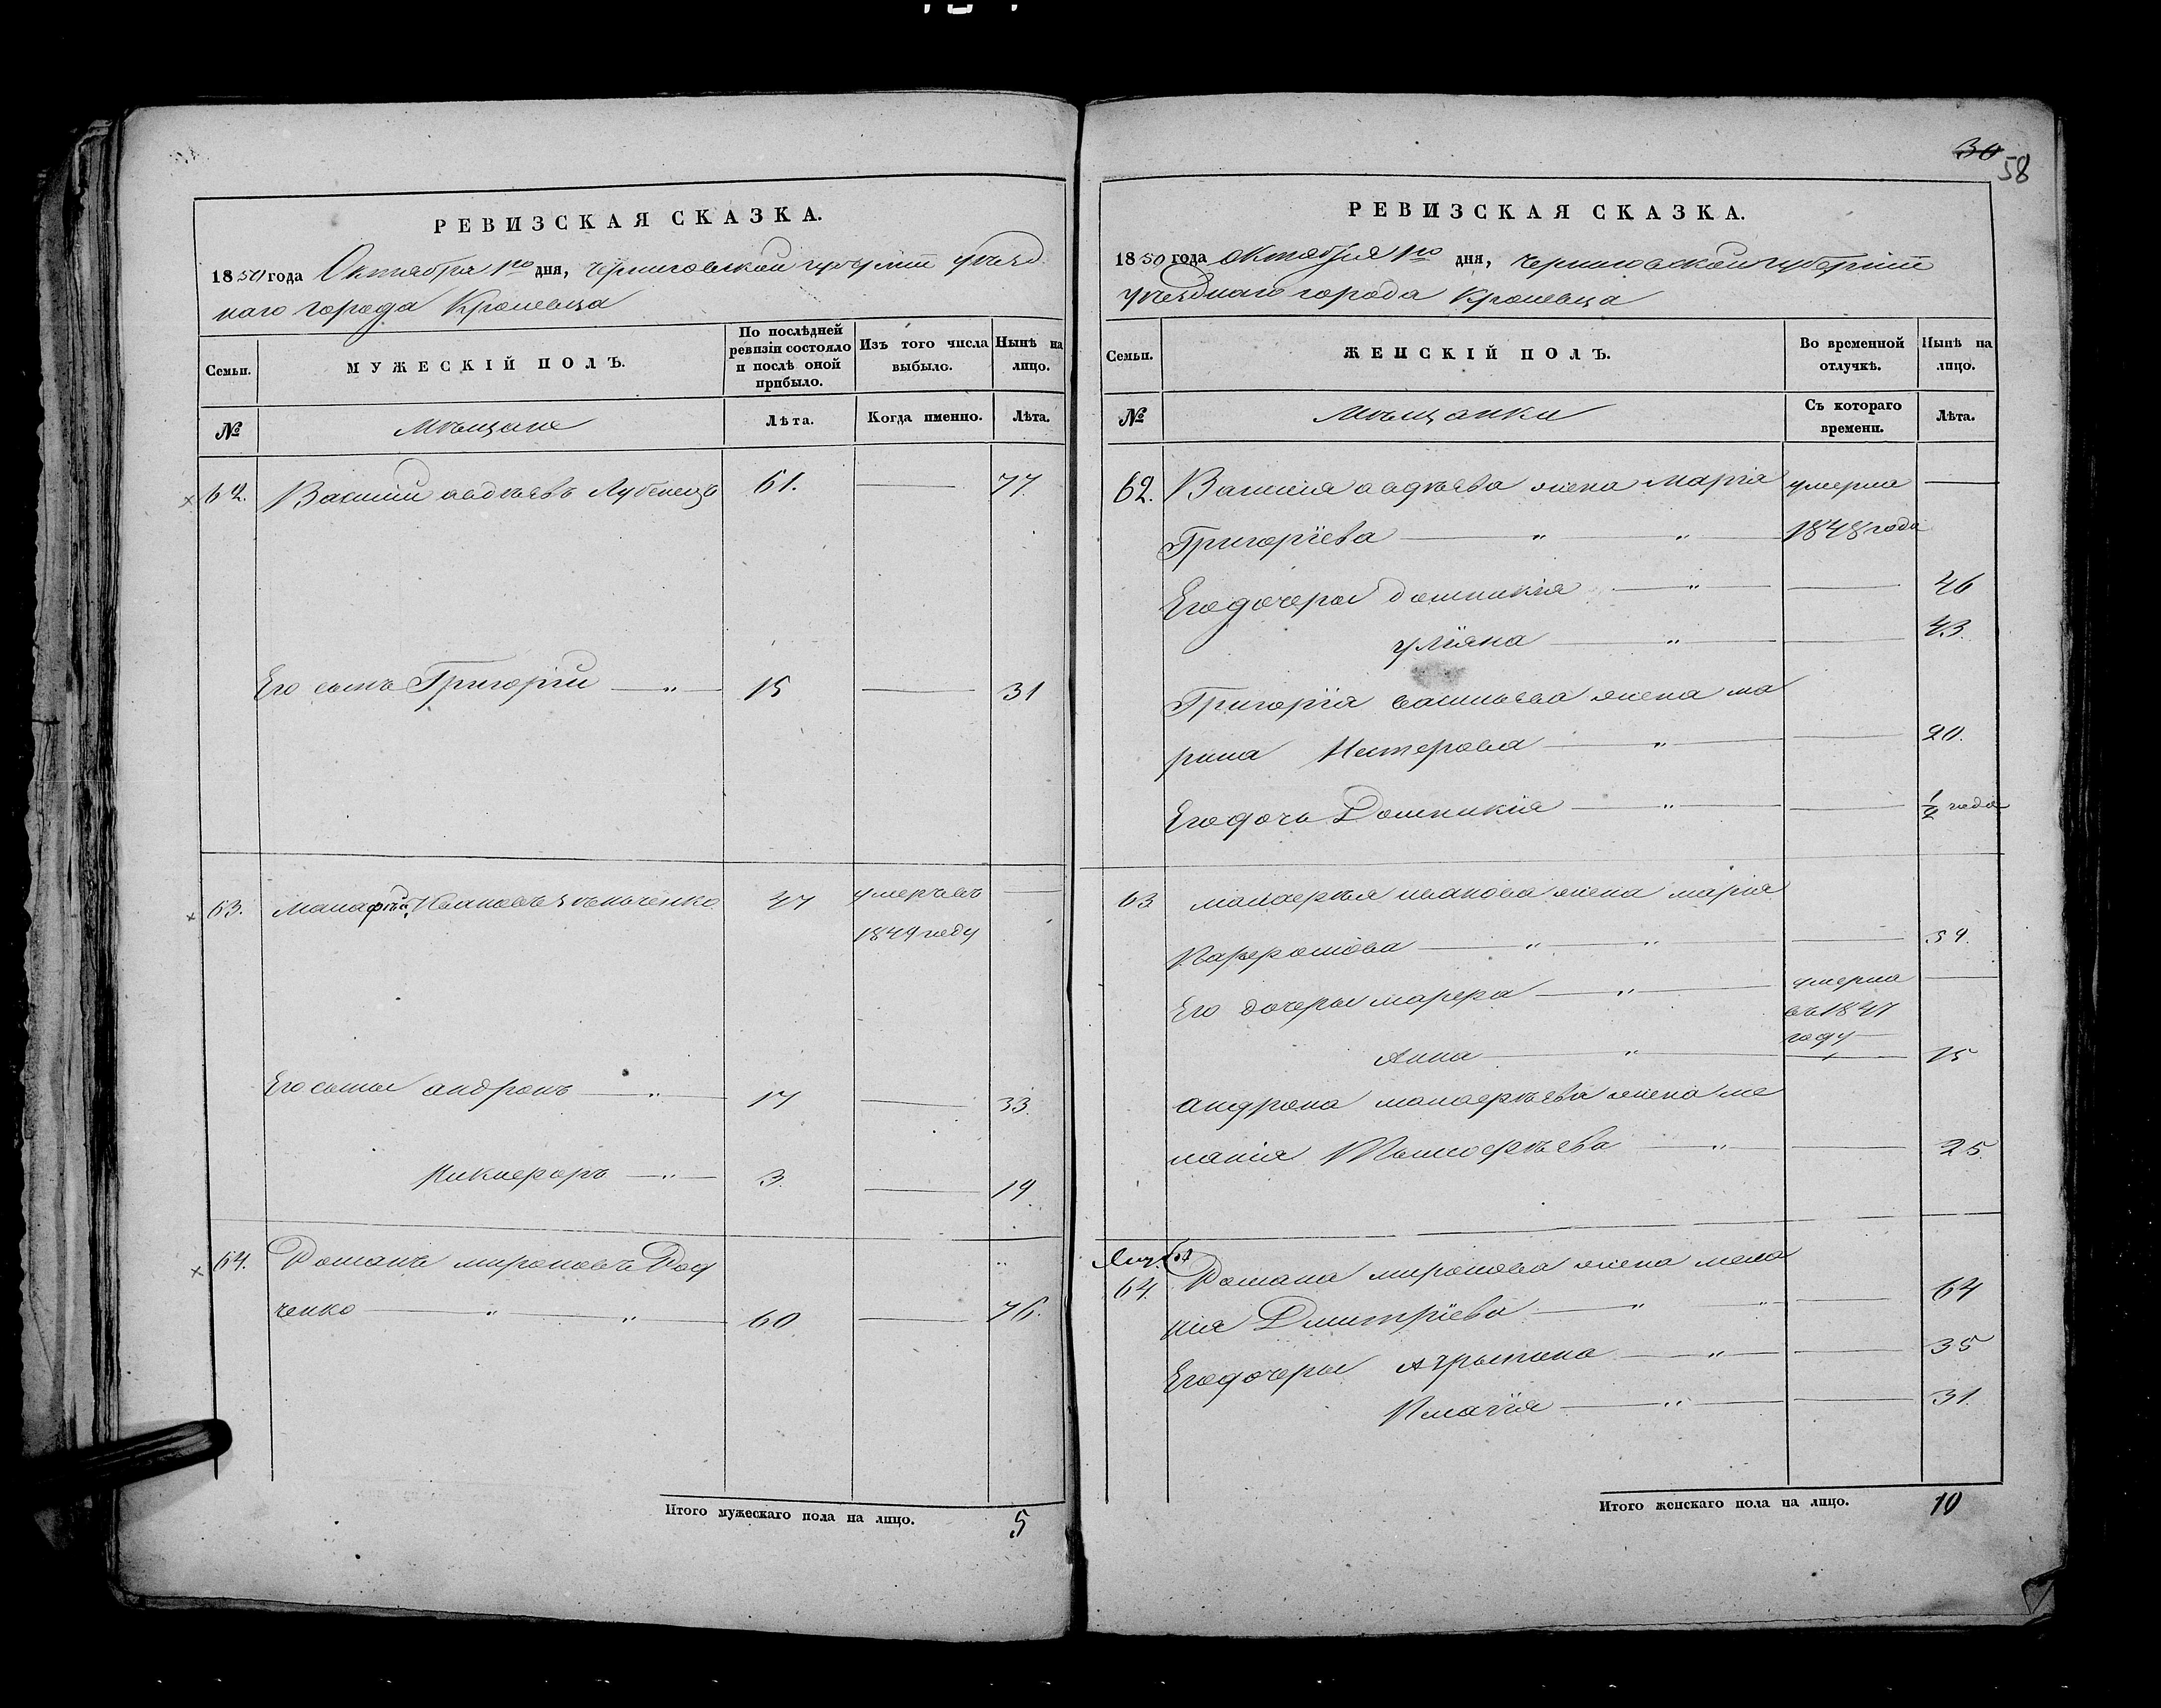 РЕВИЗСКАЯ СКАЗКА.
1850 года Октября 1го дня, Черниговской губерніи уѣзд
наго города Кролевца
Семьи.
МУЖЕСКІЙ ПОЛЪ.
По послѣдней ревизіи состояло и послѣ оной прибыло.
Изъ того числа выбыло.
Нынѣ на лицо.
№
Мѣщане
Лѣта.
Когда именно.
Лѣта.
62. Василій Авдѣевъ Лубенецъ 61. 77.
Его сынъ Григорій 15 31
63. Манафѣй Ивановъ 47 умеръ въ
1849 году
Его сыны Андронъ 17 33.
Никифоръ 3. 19
64. Романъ Мироновъ Рад
ченко 60 76.
Итого мужескаго пола на лицо. 5
30
58
РЕВИЗСКАЯ СКАЗКА.
1850 года Октября 1го дня, Черниговской губерніи
уѣзднаго города Кролевца
Семьи.
ЖЕНСКІЙ ПОЛЪ.
Во временной отлучкѣ.
Нынѣ на лицо.
№
Мѣщанки
Съ котораго времени.
Лѣта.
62. Василія Авдѣева жена Марія умерла
Григоріева 1848 года
Его дочеры Домникія 46
Уліяна 43.
Григорія Васильева жена Ма
рина Нестерова 20.
Его дочь Домникія 1/2 года
63 Манафѣя Иванова жена Марія
Парфомова 59.
Его дочеры Марфа умерла
въ 1847
году
Анна 15
Андрона Манафѣева жена Ме
ланія Тимофѣева 25.
64
64. Романа Миронова жена Мела
нія Дмитріева 64
Его дочеры Агрыпина 35
31.
Итого женскаго пола на лицо. 10